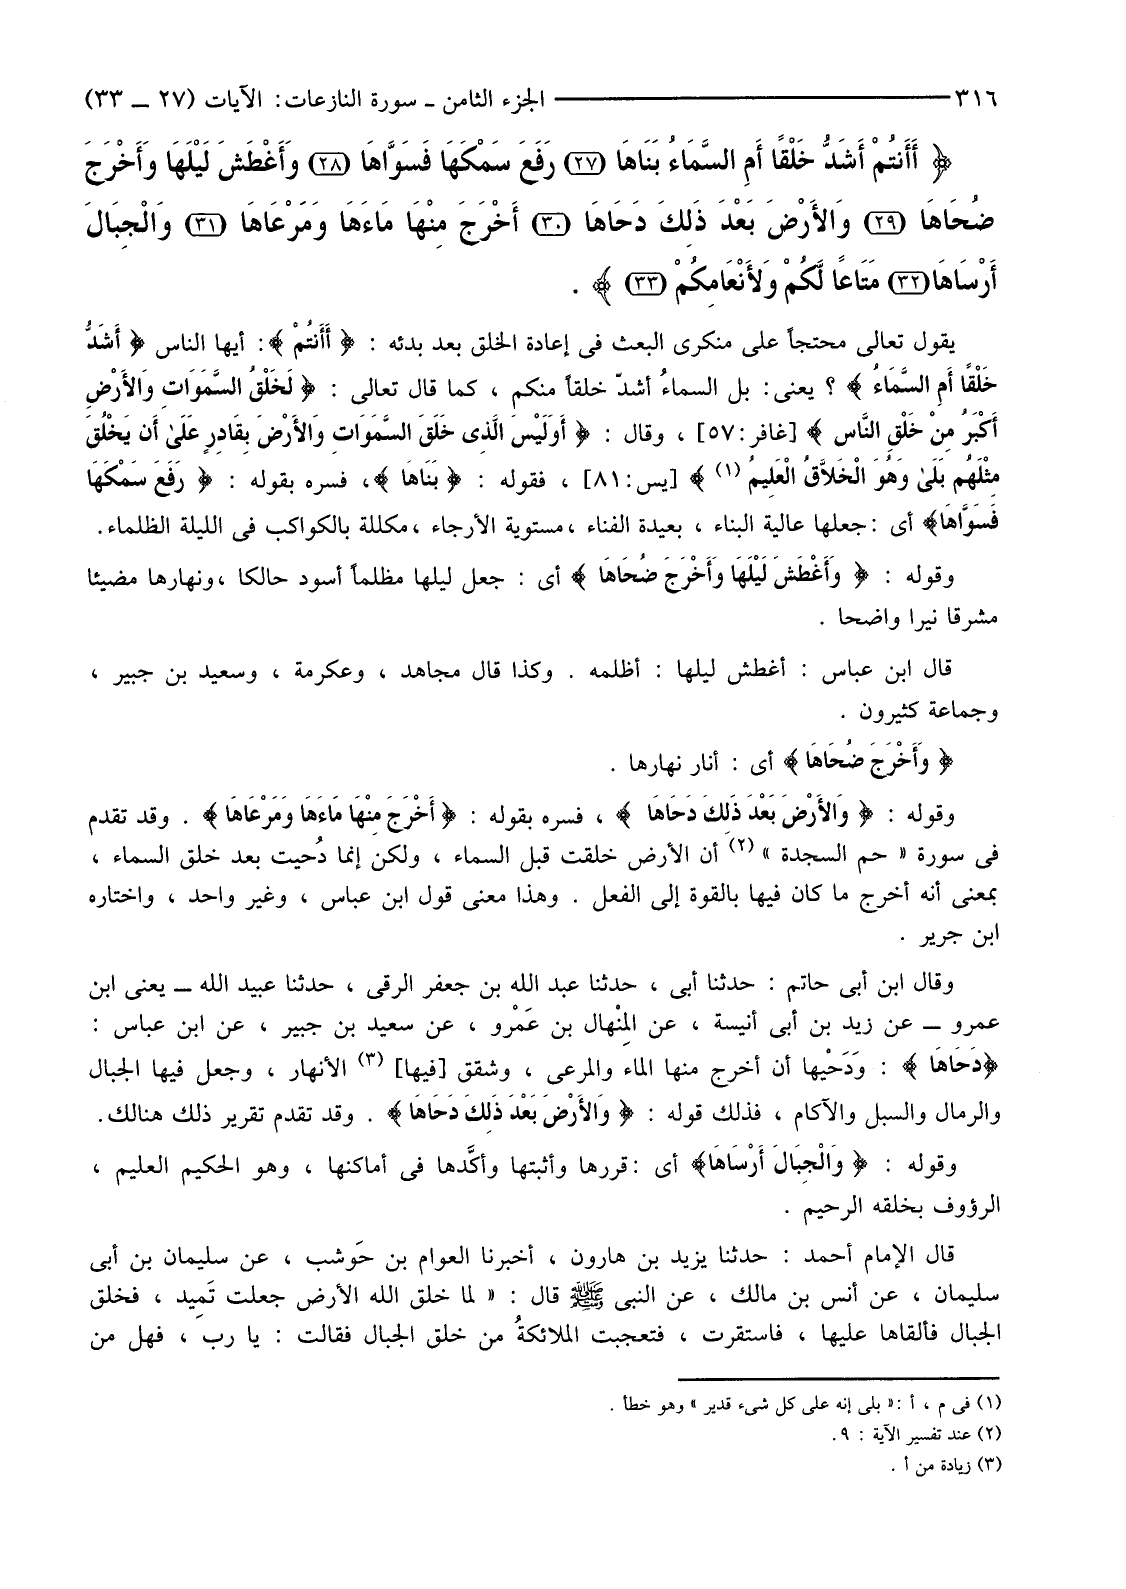 ٣١٦ ــــــــــ الجزء الثامن ـ سورة النازعات: الآيات (٢٧ ــ ٣٣)
﴿ أَأَنتُمْ أَشَدُّ خَلْقًا أَمِ السَّمَاءُ بَنَاهَا (٢٧) رَفَعَ سَمْكَهَا فَسَوَّاهَا (٢٨) وَأَغْطَشَ لَيْلَهَا وَأَخْرَجَ
ضُحَاهَا (٢٩) وَالأَرْضَ بَعْدَ ذَلِكَ دَحَاهَا (٣٠) أَخْرَجَ مِنْهَا مَاءَهَا وَمَرْعَاهَا (٣١) وَالْجِبَالَ
أَرْسَاهَا(٣٢) مَتَاعًا لَّكُمْ وَلأَنْعَامِكُمْ (٣٣) ﴾ .
يقول تعالى محتجاً على منكرى البعث فى إعادة الخلق بعد بدئه : ﴿ أَأَنتُمْ ﴾: أيها الناس ﴿ أَشَدُّ
خَلْقًا أَمِ السَّمَاءُ ﴾ ؟ يعنى: بل السماءُ أشدّ خلقاً منكم ، كما قال تعالى : ﴿ لَخَلْقُ السَّمَوَاتِ وَالأَرْضِ
أَكْبَرُ مِنْ خَلْقِ النَّاسِ ﴾ [غافر:٥٧] ، وقال : ﴿ أَوَلَيْسَ الَّذِى خَلَقَ السَّمَوَاتِ وَالأَرْضَ بِقَادِرٍ عَلَىٰ أَن يَخْلُقَ
مِثْلَهُم بَلَىٰ وَهُوَ الْخَلاَّقُ الْعَلِيمُ (١) ﴾ [يس:٨١] ، فقوله : ﴿ بَنَاهَا ﴾، فسره بقوله : ﴿ رَفَعَ سَمْكَهَا
فَسَوَّاهَا﴾ أى :جعلها عالية البناء ، بعيدة الفناء ،مستوية الأرجاء ،مكللة بالكواكب فى الليلة الظلماء.
وقوله : ﴿ وَأَغْطَشَ لَيْلَهَا وَأَخْرَجَ ضُحَاهَا ﴾ أى : جعل ليلها مظلماً أسود حالكا ،ونهارها مضيئا
مشرقا نيرا واضحا .
قال ابن عباس : أغطش ليلها : أظلمه . وكذا قال مجاهد ، وعكرمة ، وسعيد بن جبير ،
وجماعة كثيرون .
﴿ وَأَخْرَجَ ضُحَاهَا ﴾ أى : أنار نهارها .
وقوله : ﴿ وَالأَرْضَ بَعْدَ ذَلِكَ دَحَاهَا ﴾ ، فسره بقوله : ﴿ أَخْرَجَ مِنْهَا مَاءَهَا وَمَرْعَاهَا ﴾ . وقد تقدم
فى سورة « حم السجدة » (٢) أن الأرض خلقت قبل السماء ، ولكن إنما دُحيت بعد خلق السماء ،
بمعنى أنه أخرج ما كان فيها بالقوة إلى الفعل . وهذا معنى قول ابن عباس ، وغير واحد ، واختاره
ابن جرير .
وقال ابن أبى حاتم : حدثنا أبى ، حدثنا عبد الله بن جعفر الرقى ، حدثنا عبيد الله ــ يعنى ابن
عمرو ــ عن زيد بن أبى أنيسة ، عن المِنْهال بن عَمْرو ، عن سعيد بن جبير ، عن ابن عباس :
﴿دَحَاهَا ﴾ : وَدَحْيها أن أخرج منها الماء والمرعى ، وشقق [فيها] (٣) الأنهار ، وجعل فيها الجبال
والرمال والسبل والآكام ، فذلك قوله : ﴿ وَالأَرْضَ بَعْدَ ذَلِكَ دَحَاهَا ﴾ . وقد تقدم تقرير ذلك هنالك.
وقوله : ﴿ وَالْجِبَالَ أَرْسَاهَا﴾ أى :قررها وأثبتها وأكَّدها فى أماكنها ، وهو الحكيم العليم ،
الرؤوف بخلقه الرحيم .
قال الإمام أحمد : حدثنا يزيد بن هارون ، أخبرنا العوام بن حَوشب ، عن سليمان بن أبى
سليمان ، عن أنس بن مالك ، عن النبى ﷺ قال : « لما خلق الله الأرض جعلت تَمِيد ، فخلق
الجبال فألقاها عليها ، فاستقرت ، فتعجبت الملائكةُ من خلق الجبال فقالت : يا رب ، فهل من
(١) فى م ، أ :« بلى إنه على كل شىء قدير » وهو خطأ .
(٢) عند تفسير الآية : ٩.
(٣) زيادة من أ .